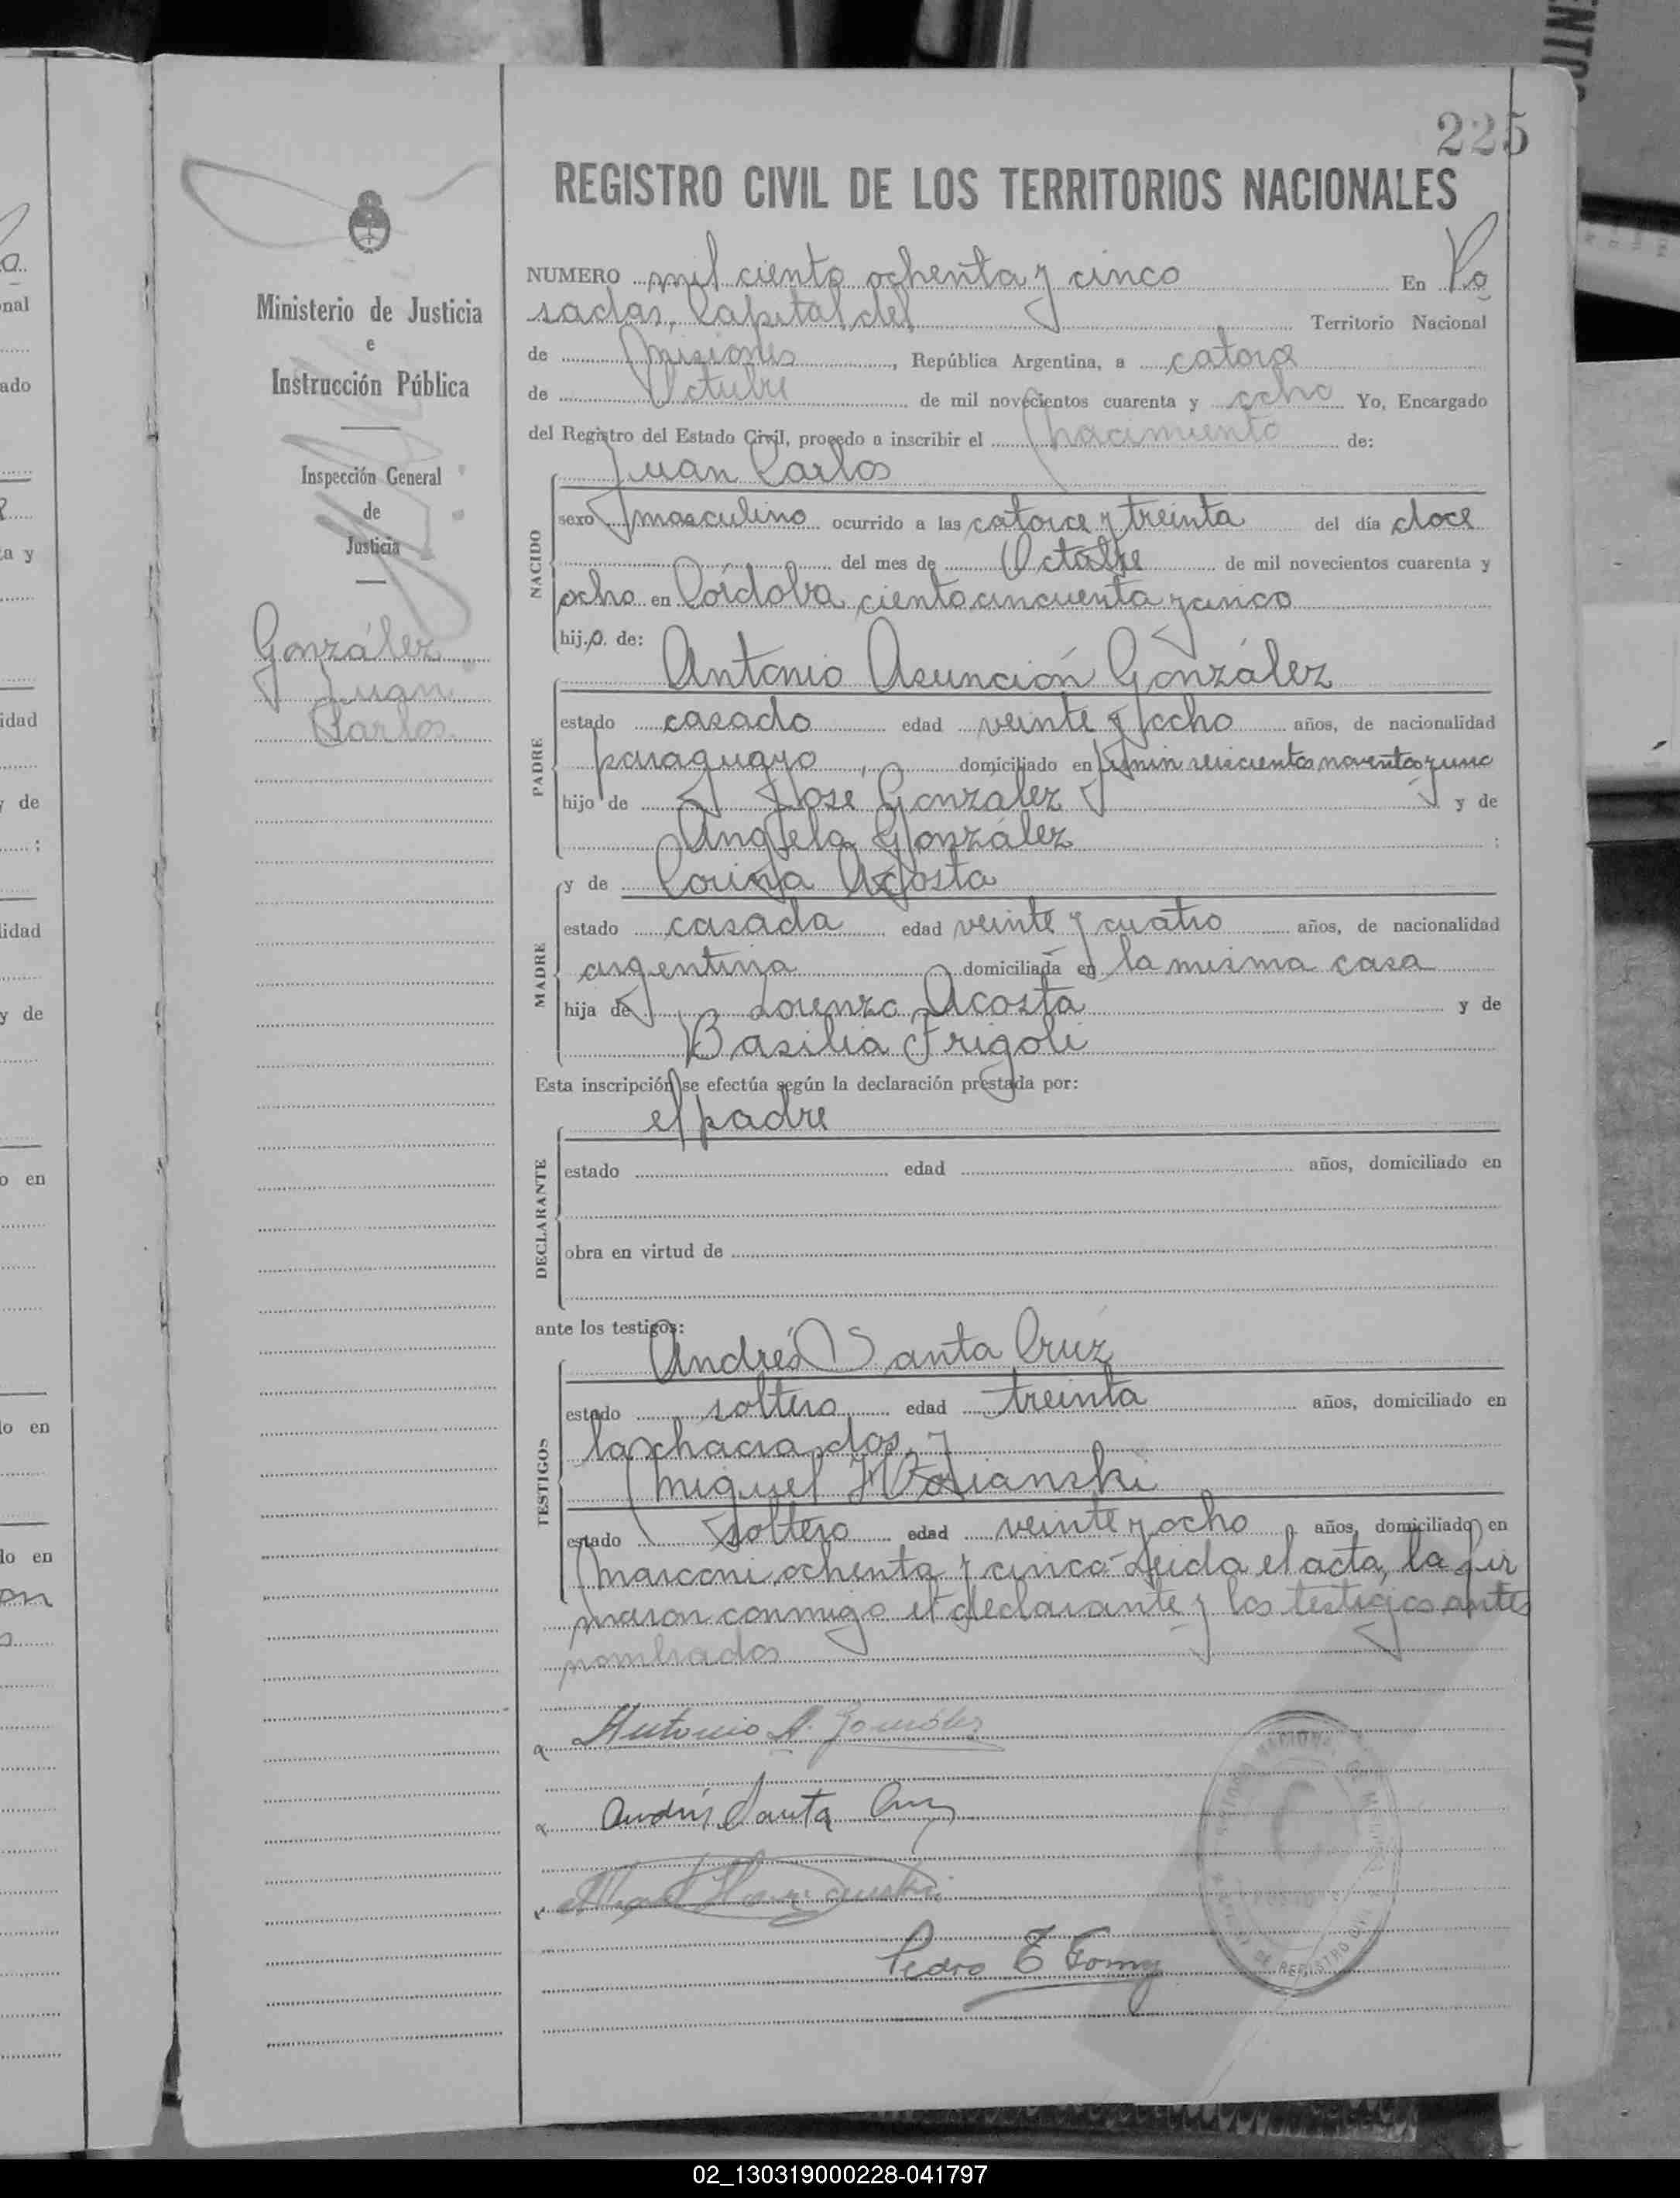 225
REGISTRO CIVIL DE LOS TERRITORIOS NACIONALES
Ministerio de Justicia
e
Instrucción Pública
Inspección General
de
Justicia
González
Juan
Carlos
NUMERO mil ciento ochenta y cinco En Po
sadas, Capital del Territorio Nacional
de Misiones, República Argentina, a catorce
de Octubre de mil novecientos cuarenta y ocho Yo, Encargado
del Registro del Estado Civil, procedo a inscribir el nacimiento de:
Juan Carlos
NACIDO
sexo masculino ocurrido a las catorce y treinta del día doce
del mes de Octubre de mil novecientos cuarenta y
ocho en Córdoba ciento cincuenta y cinco
hijo de:
Antonio Asunción González
PADRE
estado casado edad veinte y ocho años, de nacionalidad
paraguayo, domiciliado en Junin seiscientos noventa y uno
hijo de José González y de
Angela González :
y de Corina Acosta
MADRE
estado casada edad veinte y cuatro años, de nacionalidad
argentina domiciliada en la misma casa
hija de Lorenzo Acosta y de
Basilia Frigoli
Esta inscripción se efectúa según la declaración prestada por:
el padre
DECLARANTE
estado edad años, domiciliado en
obra en virtud de
ante los testigos:
Andrés Santa Cruz
TESTIGOS
estado soltero edad treinta años, domiciliado en
la chacra dos, y
Miguel
estado soltero edad veinte y ocho años, domiciliado en
Marconi ochenta y cinco- Leida el acta, la fir
maron conmigo el declarante y los testigos antes
nombrados
Antonio A. González
Andrés Santa Cruz
Pedro E Gomez
DE REGISTRO CIVIL
nal
ado
a y
idad
y de
:
lidad
y de
o en
lo en
lo en
02_130319000228-041797